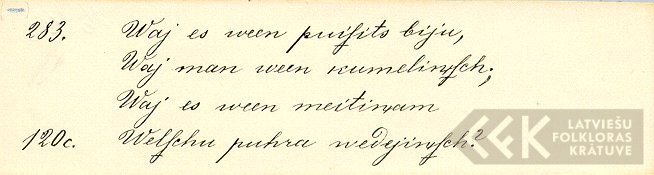 283. Waj es ween puiſits biju,
Waj man ween kumelinſch;
Waj es ween meitiņam
120c. Welſchu puhra wedejinſch?
LATVIEŠU
FOLKLORAS
KRĀTUVE